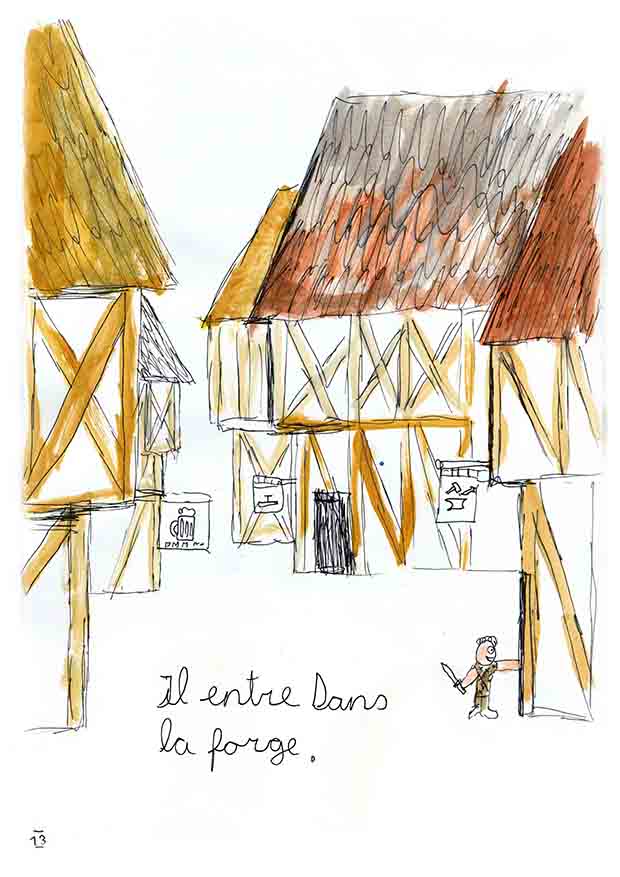 Il entre Dans
la forge.
13